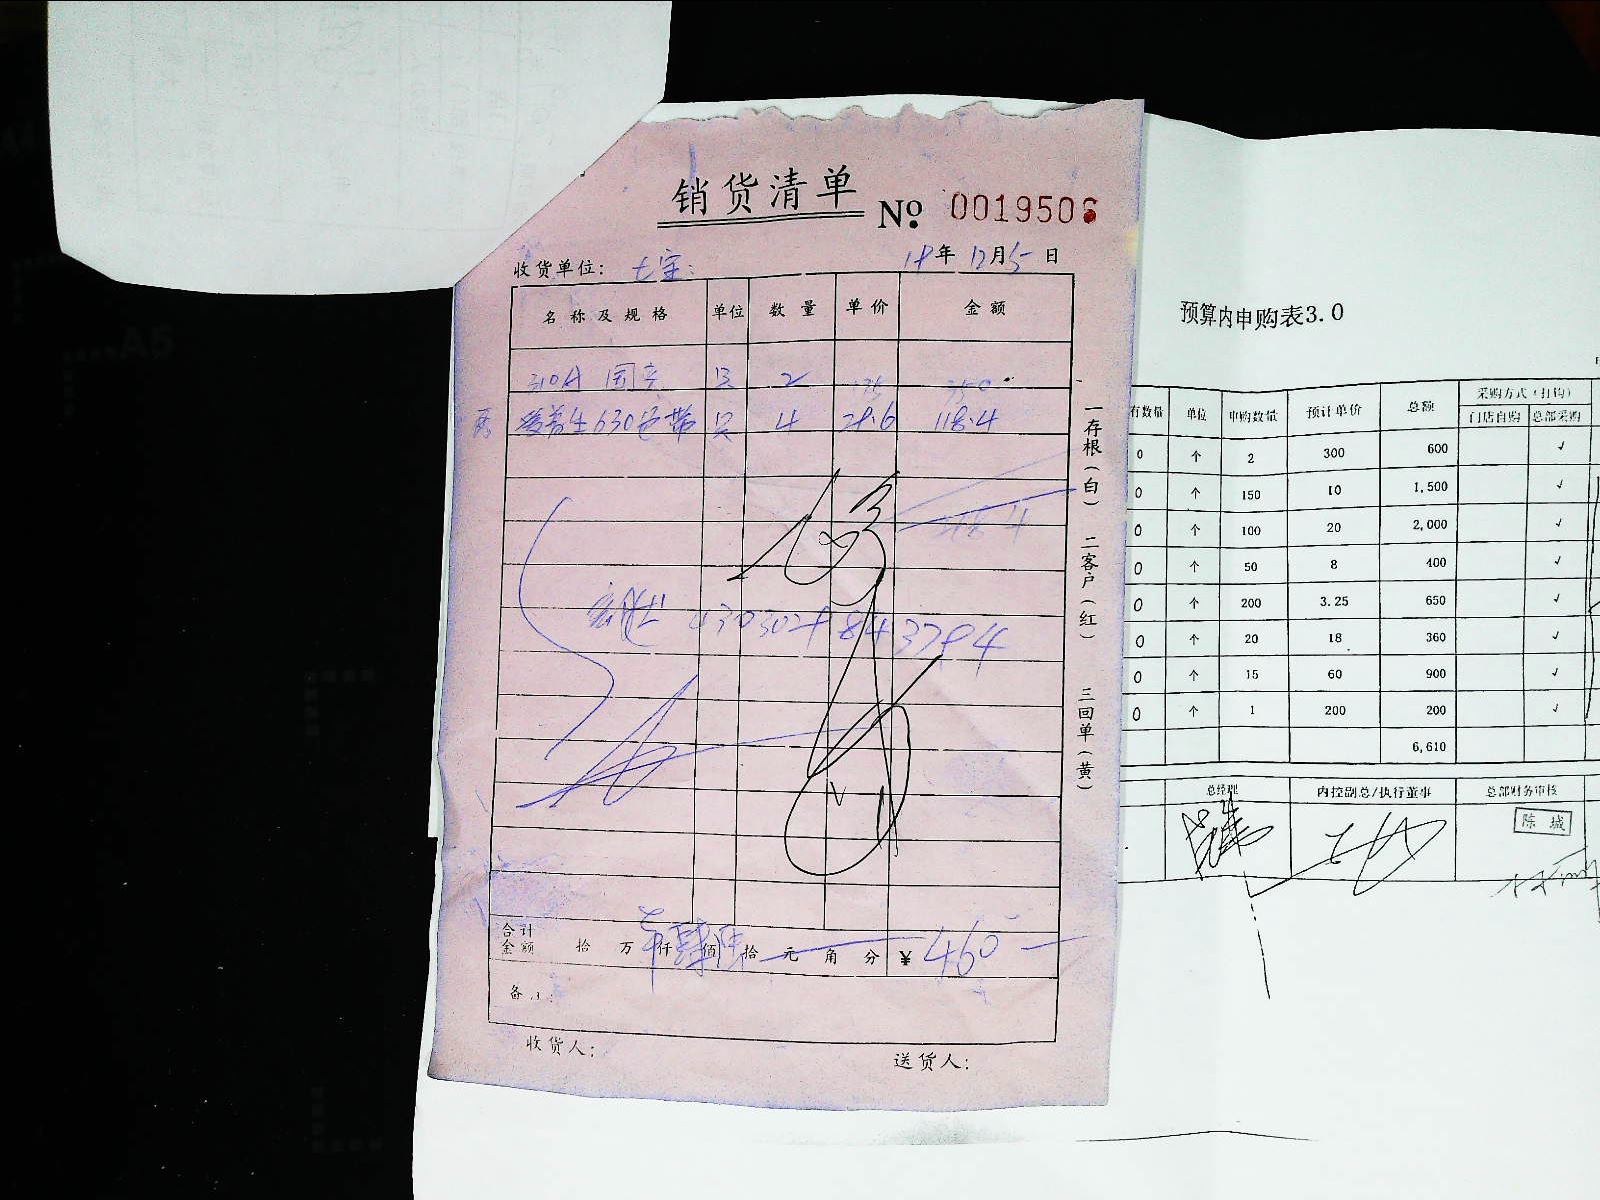 销货清单 No. 0019506
收货单位: 七宝: 18年 12月5日
名称及规格 单位 数量 单价 金额
310A 国产 只 2 175 350
爱普生630色带 只 4 29.6 118.4
468.4
合计金额 拾 万 仟 肆佰 陆拾 元 角 分 ¥ 460
备注:
收货人: 送货人:
一存根(白) 二客户(红) 三回单(黄)
预算内申购表3.0
有数量 单位 申购数量 预计单价 总额 采购方式(打钩)
门店自购 总部采购
0 个 2 300 600 √
0 个 150 10 1,500 √
0 个 100 20 2,000 √
0 个 50 8 400 √
0 个 200 3.25 650 √
0 个 20 18 360 √
0 个 15 60 900 √
0 个 1 200 200 √
6,610
总经理 内控副总/执行董事 总部财务审核
陈城
A5